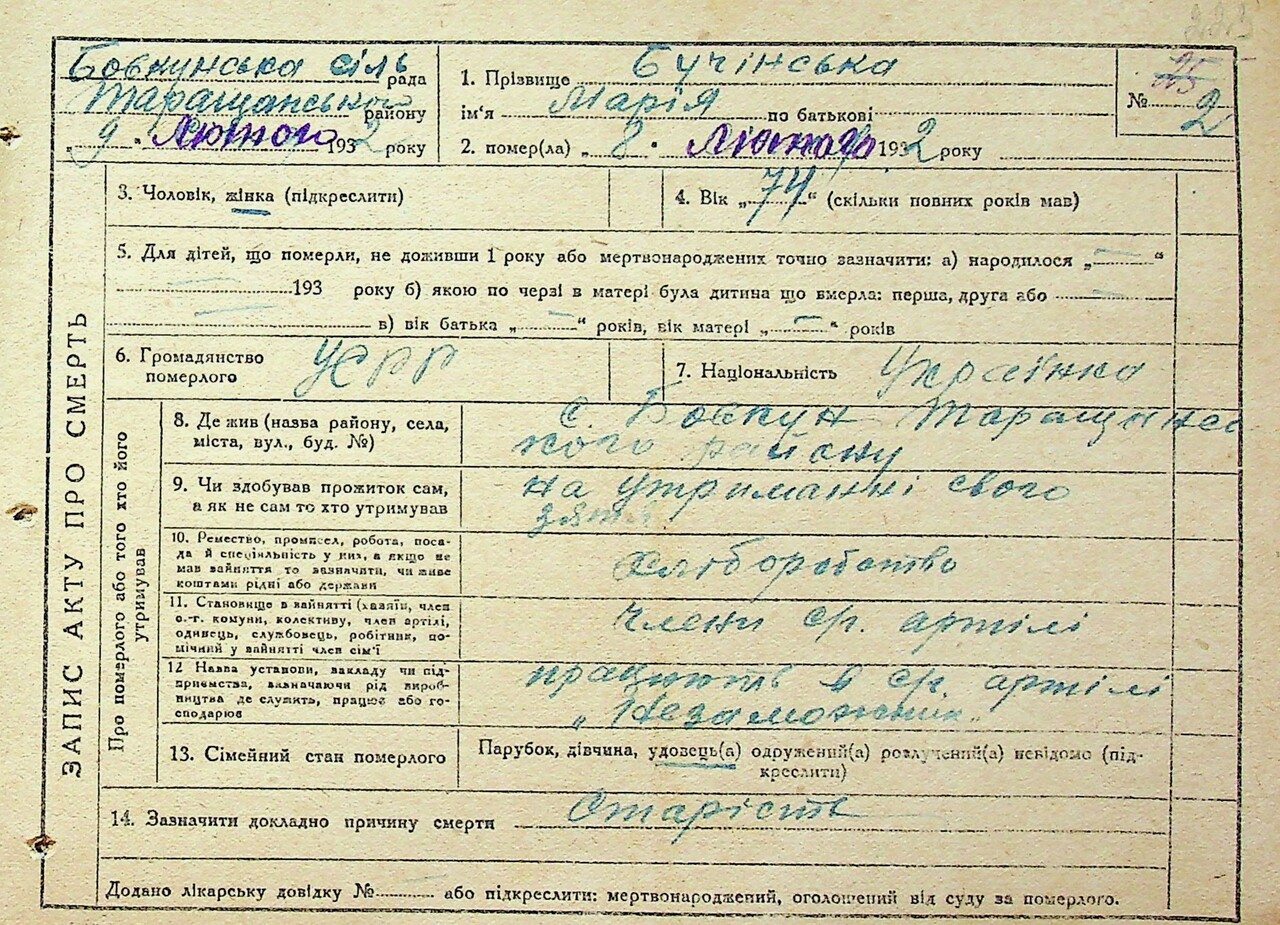 Бовкунська сіль рада
Таращанського району
„ 9 " Лютого 1932 року
1. Прізвище Бучінська
ім'я Марія по батькові
2. помер(ла) „ 8 " Лютого 1932 року
№ 2
ЗАПИС АКТУ ПРО СМЕРТЬ
3. Чоловік, жінка (підкреслити)
4. Вік „ 74 " (скільки повних років мав)
5. Для дітей, що померли, не доживши 1 року або мертвонароджених точно зазначити: а) народилося „ — "
— 193 року б) якою по черзі в матері була дитина що вмерла: перша, друга або —
— в) вік батька „ — " років, вік матері „ — " років
6. Громадянство
померлого УСРР
7. Національність Українка
Про померлого або того хто його
утримував
8. Де жив (назва району, села,
міста, вул., буд. №)
с. Бовкун Таращансь
кого району
9. Чи здобував прожиток сам,
а як не сам то хто утримував
на утриманні свого
зятя
10. Ремество, промисел, робота, поса-
да й спеціяльність у них, а якщо не
мав зайняття то зазначити, чи живе
коштами рідні або держави
Хліборобство
11. Становище в зайнятті (хазяїн, член
с.-г. комуни, колективу, член артілі,
одинець, службовець, робітник, по-
мічний у зайнятті член сім'ї
члени с/г. артілі
12 Назва установи, закладу чи під-
приємства, зазначаючи рід вироб-
ництва де служить, працює або го-
сподарює
працюють в с/г. артілі
„Незаможник"
13. Сімейний стан померлого
Парубок, дівчина, удовець(а) одружений(а) розлучений(а) невідомо (під-
креслити)
14. Зазначити докладно причину смерти Старість
Додано лікарську довідку № або підкреслити: мертвонароджений, оголошений від суду за померлого.